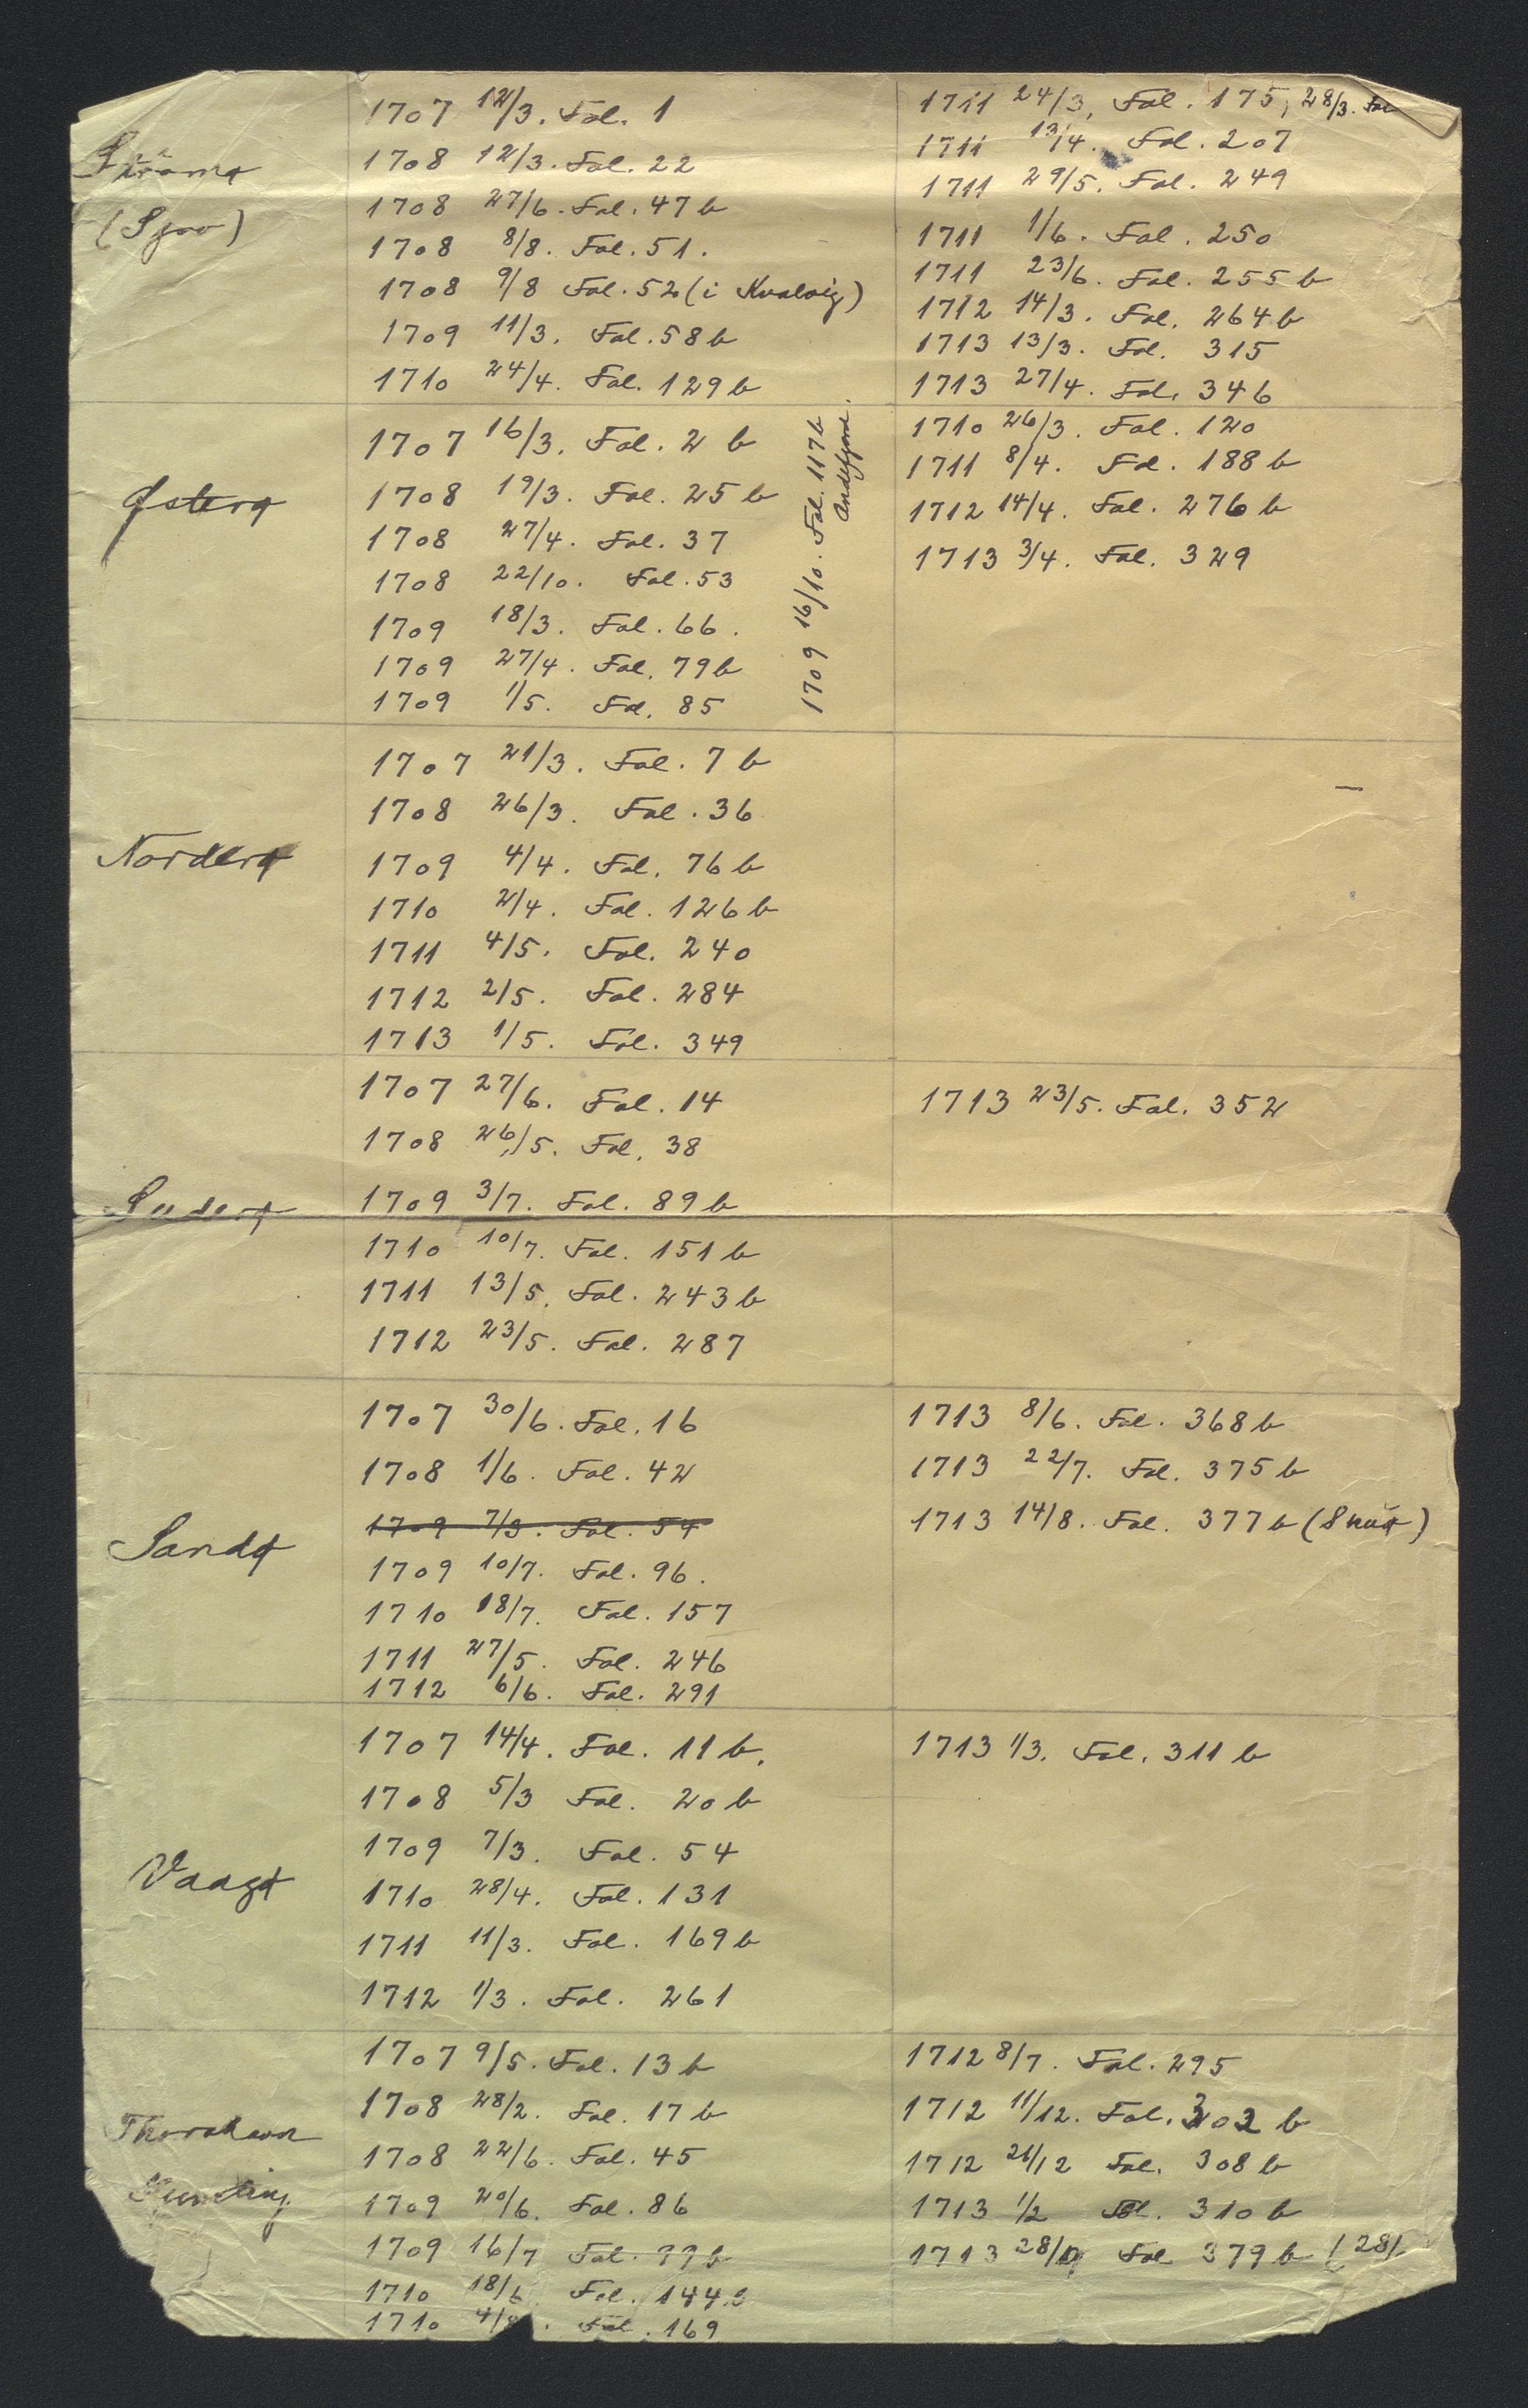 Strømø
(Sjov)
1707 12/3. Fol. 1
1708 12/3. Fol. 22
1708 27/6. Fol. 47 b
1708 8/8. Fol. 51.
1708 9/8 Fol. 52 (i Kvalvig)
1709 11/3. Fol. 58 b
1710 24/4. Fol. 129 b
1711 24/3, Fol. 175, 28/3. Fol
1711 13/4. Fol. 207
1711 29/5. Fol. 249
1711 1/6. Fol. 250
1711 23/6. Fol. 255 b
1712 14/3. Fol. 264 b
1713 13/3. Fol. 315
1713 27/4. Fol. 346
Østerø
1707 16/3. Fol. 2 b
1708 19/3. Fol. 25 b
1708 27/4. Fol. 37
1708 22/10. Fol. 53
1709 18/3. Fol. 66.
1709 27/4. Fol. 79 b
1709 1/5. Fol. 85
1709 16/10. Fol. 117 b
Andefjord.
1710 26/3. Fol. 120
1711 8/4. Fol. 188 b
1712 14/4. Fol. 276 b
1713 3/4. Fol. 329
Norderø
1707 21/3. Fol. 7 b
1708 26/3. Fol. 36
1709 4/4. Fol. 76 b
1710 2/4. Fol. 126 b
1711 4/5. Fol. 240
1712 2/5. Fol. 284
1713 1/5. Fol. 349
Suderø
1707 27/6. Fol. 14
1708 26/5. Fol. 38
1709 3/7. Fol. 89 b
1710 10/7. Fol. 151 b
1711 13/5. Fol. 243 b
1712 23/5. Fol. 287
1713 23/5. Fol. 352
Sandø
1707 30/6. Fol. 16
1708 1/6. Fol. 42
1709 7/3. Fol. 54
1709 10/7. Fol. 96.
1710 18/7. Fol. 157
1711 27/5. Fol. 246
1712 6/6. Fol. 291
1713 8/6. Fol. 368 b
1713 22/7. Fol. 375 b
1713 14/8. Fol. 377 b (Skuø)
Vaagø
1707 14/4. Fol. 11 b.
1708 5/3 Fol. 20 b
1709 7/3. Fol. 54
1710 28/4. Fol. 131
1711 11/3. Fol. 169 b
1712 1/3. Fol. 261
1713 1/3. Fol. 311 b
Thorshavn
1707 9/5. Fol. 13 b
1708 28/2. Fol. 17 b
1708 22/6. Fol. 45
1709 20/6. Fol. 86
1709 16/7 Fol. 99 b
1710 18/6 Fol. 144
1710 Fol. 169
1712 8/7. Fol. 295
1712 11/12. Fol. 302 b
1712 21/12 Fol. 308 b
1713 1/2 Fol. 310 b
1713 Fol 379 b (28/